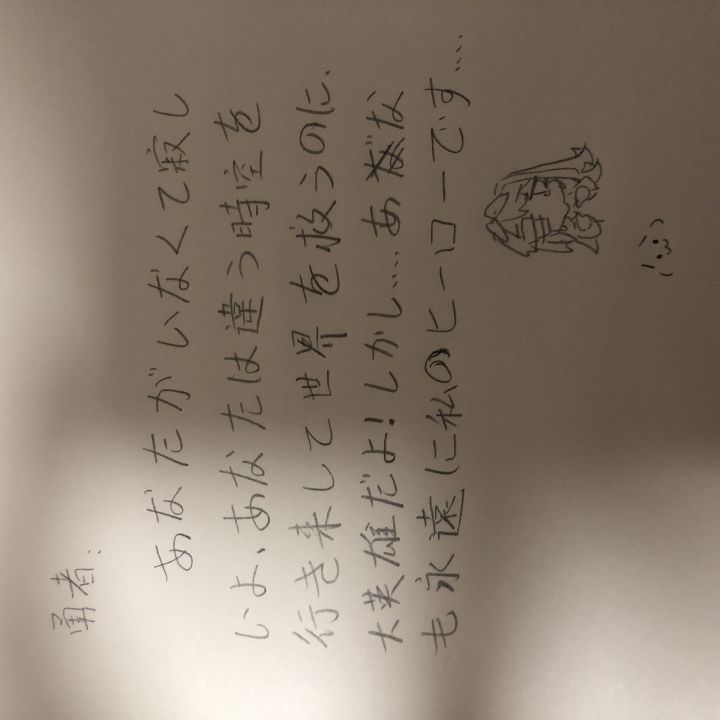 勇者:
あなたがいなくて寂し
いよ、あなたは違う時空を
行き来して世界を救うのに、
大英雄だよ!しかし....あな
も永遠に私のヒーローです....